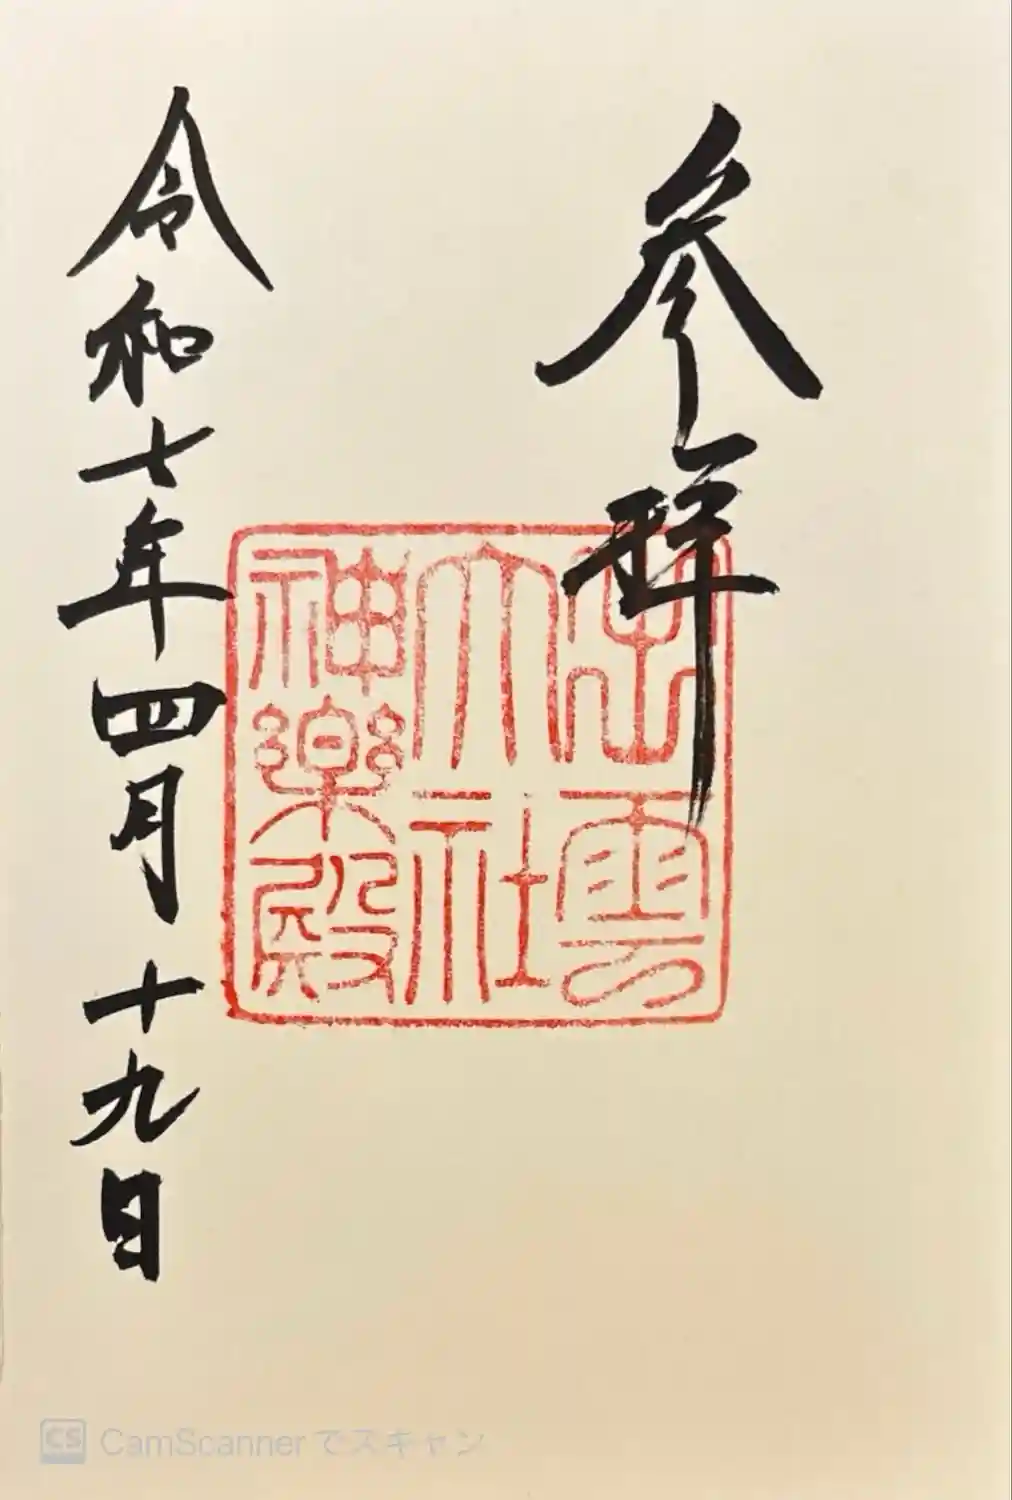 参拝
出雲
大社
神楽殿
令和七年四月十九日
CS CamScannerでスキャン